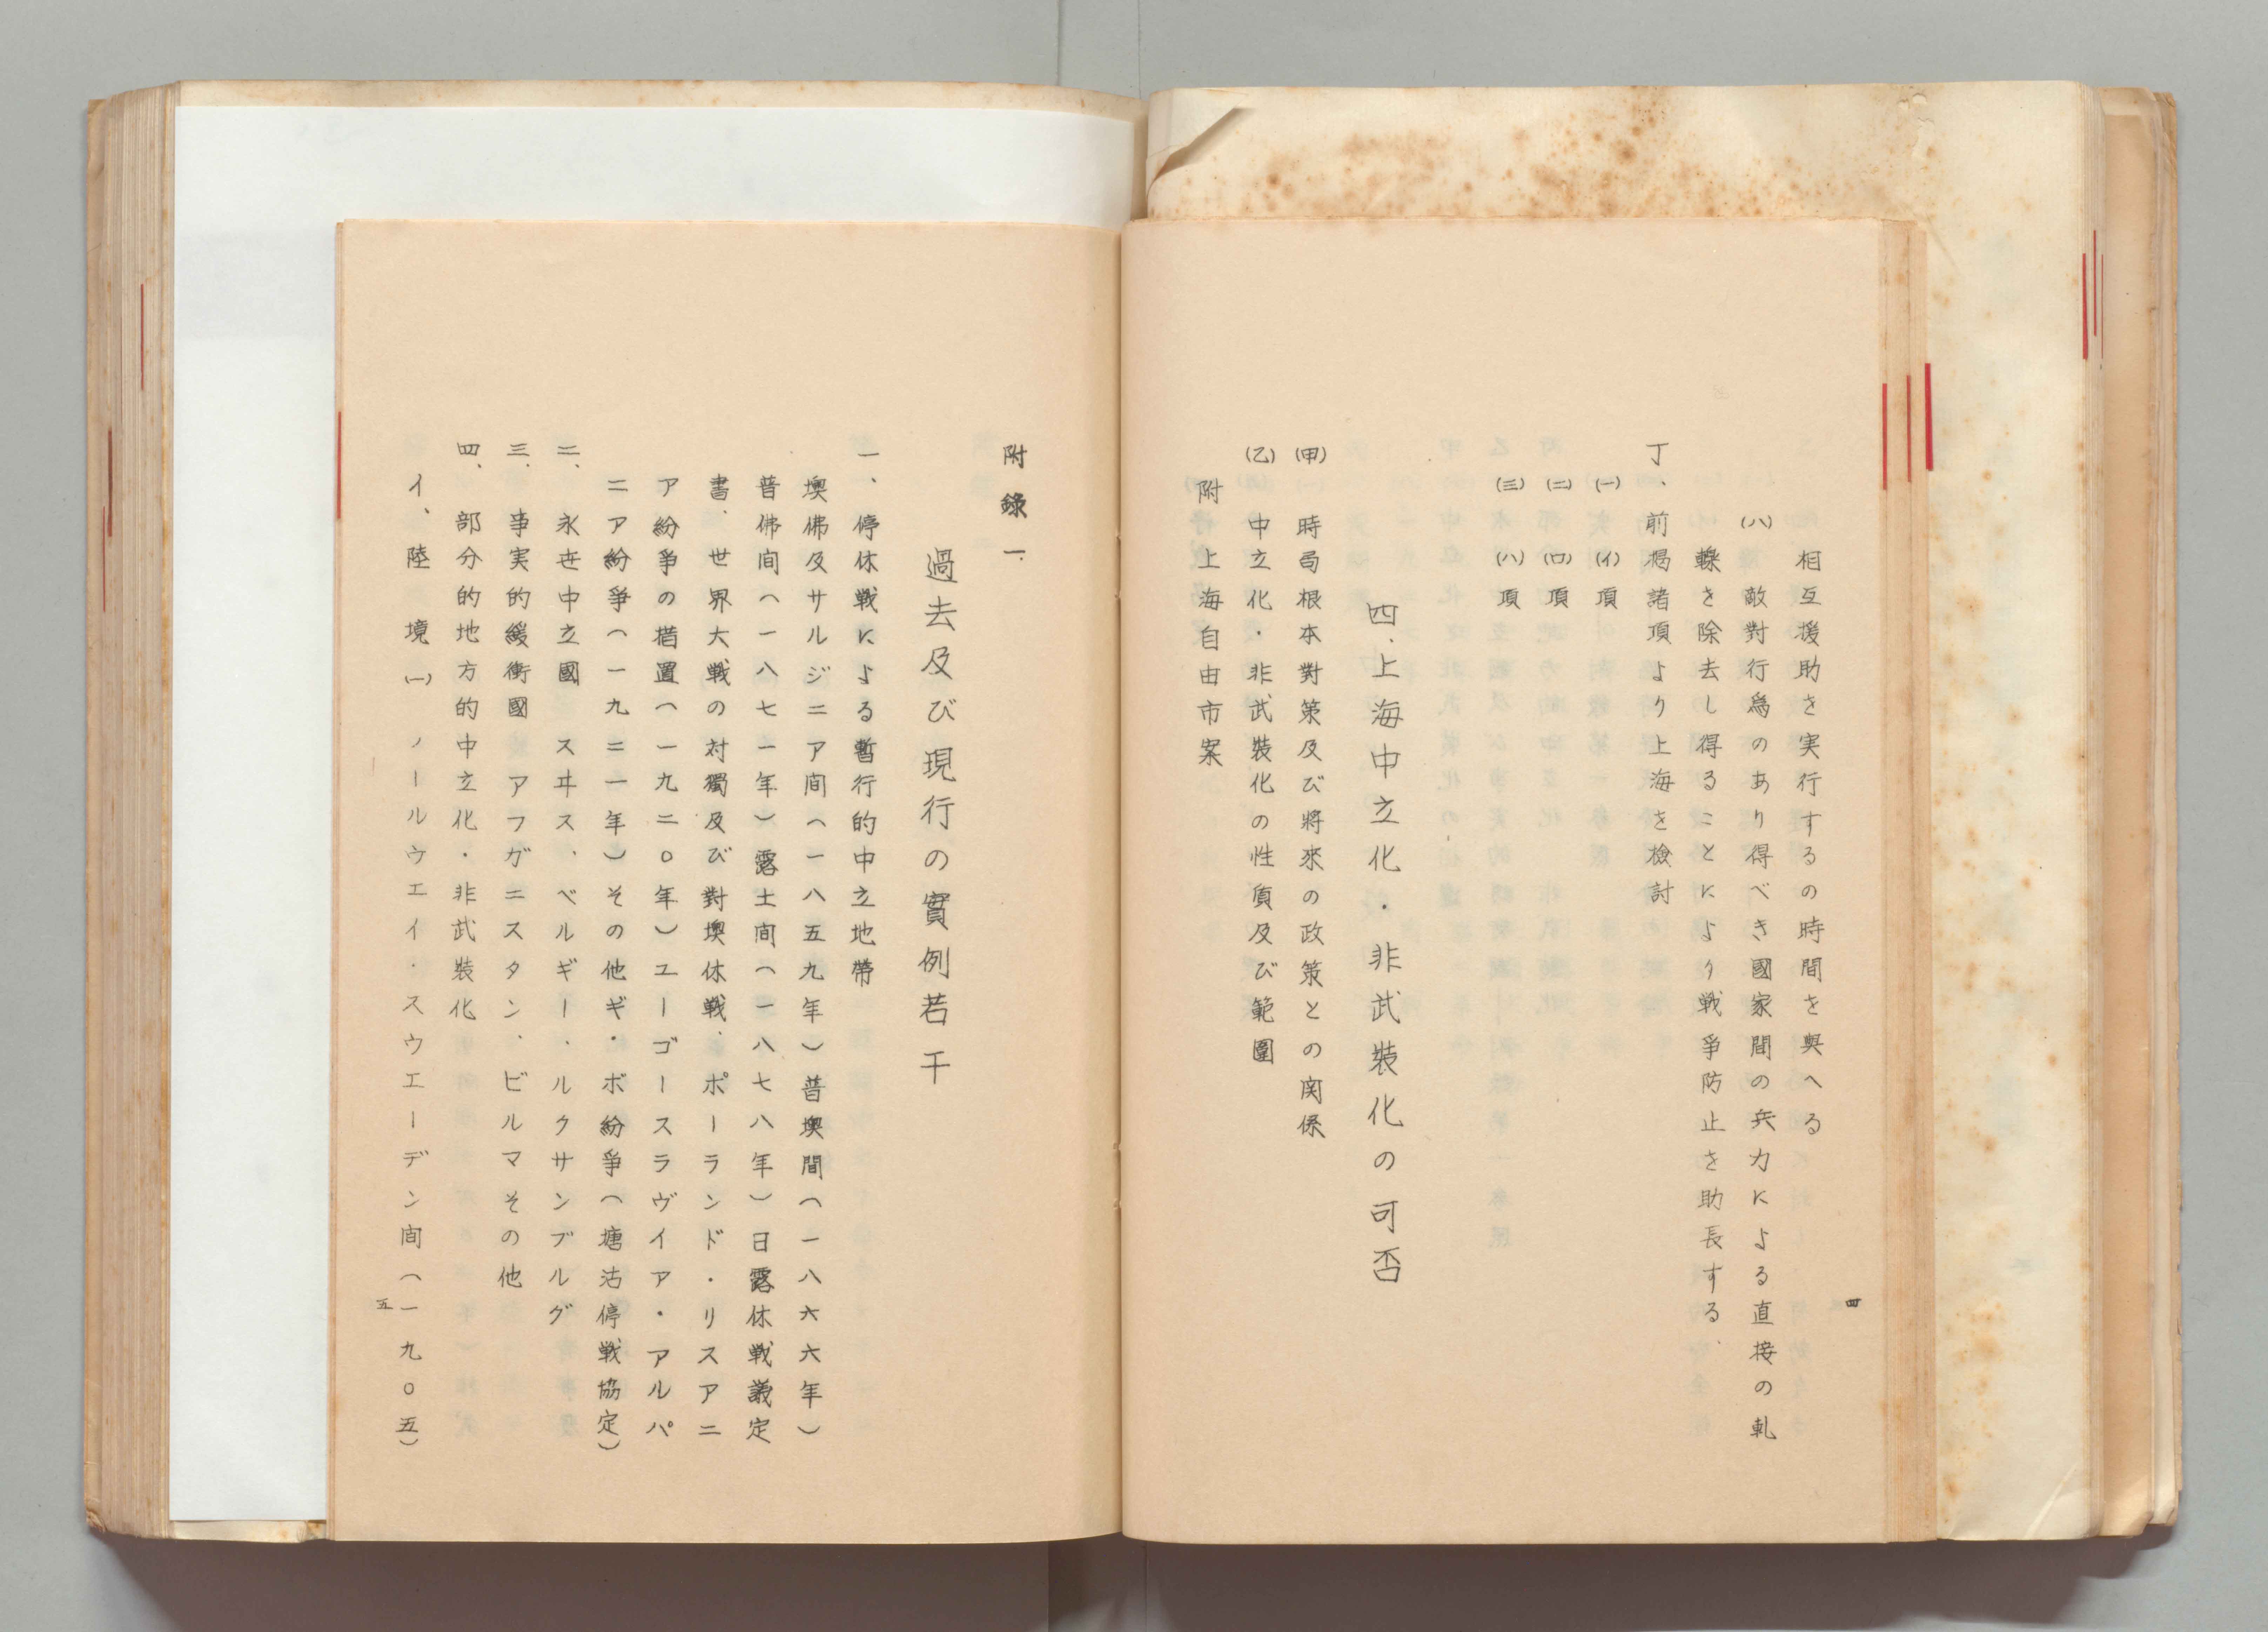 相互援助を実行するの時間を與へる
(ハ) 敵對行爲のあり得べき國家間の兵力による直接の軋
轢を除去し得ることにより戦爭防止を助長する、
丁、前揭諸項より上海を檢討
(一) (イ) 項
(二) (ロ) 項
(三) (ハ) 項
四、上海中立化・非武裝化の可否
(甲) 時局根本對策及び將來の政策との関係
(乙) 中立化・非武裝化の性質及び範圍
附 上海自由市案
四
附錄一、
過去及び現行の實例若干
一、停休戦による暫行的中立地帶
墺佛及サルジニア間(一八五九年)普墺間(一八六六年)
普佛間(一八七一年)露土間(一八七八年)日露休戦議定
書、世界大戦の対獨及び對墺休戦、ポーランド・リスアニ
ア紛爭の措置(一九二〇年)ユーゴースラヴイア・アルパ
ニア紛爭(一九二一年)その他ギ・ボ紛爭(塘沽停戦協定)
二、永世中立國 スヰス、ベルギー、ルクサンブルグ
三、事実的緩衝國 アフガニスタン、ビルマその他
四、部分的地方的中立化・非武裝化
イ、陸境 (一) ノールウエイ・スウエーデン間(一九〇五)
五